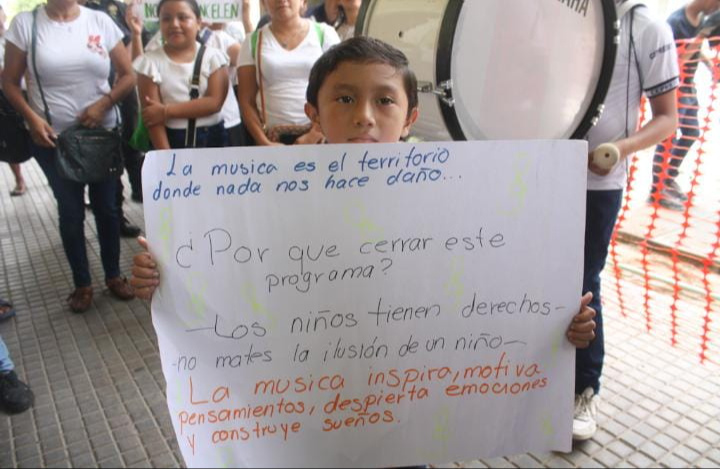 NO CANCELEN
YAMAHA
La musica es el territorio
donde nada nos hace daño...
¿Por que cerrar este
programa?
-Los niños tienen derechos-
-no mates la ilusión de un niño-
La musica inspira, motiva
pensamientos, despierta emociones
y construye sueños.